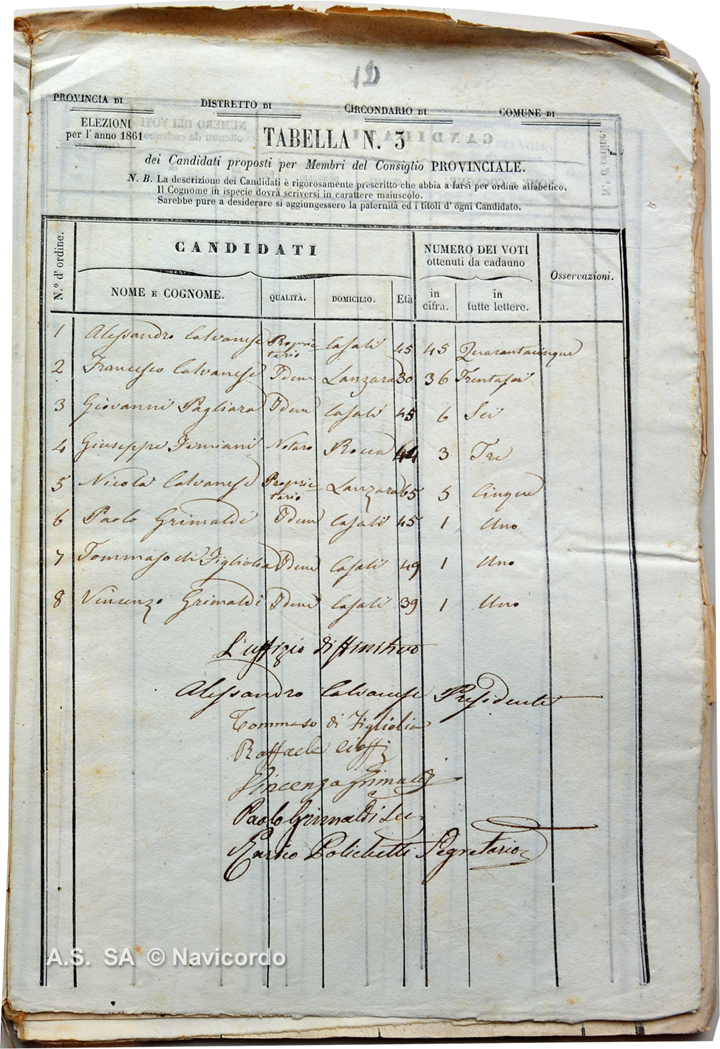 12
PROVINCIA DI DISTRETTO DI CIRCONDARIO DI COMUNE DI
ELEZIONI
per l'anno 1861
TABELLA N. 3
dei Candidati proposti per Membri del Consiglio PROVINCIALE.
N. B. La descrizione dei Candidati è rigorosamente prescritto che abbia a farsi per ordine alfabetico.
Il Cognome in ispecie dovrà scriversi in carattere maiuscolo.
Sarebbe pure a desiderare si aggiungessero la paternità ed i titoli d'ogni Candidato.
N.° d'ordine. CANDIDATI NUMERO DEI VOTI
ottenuti da cadauno Osservazioni.
NOME E COGNOME. QUALITÀ. DOMICILIO. Età in cifra. in tutte lettere.
1 Alessandro Calvanese Proprietario Casali 45 45 Quarantacinque
2 Francesco Calvanese Idem Lanzara 30 36 Trentasei
3 Giovanni Pagliara Idem Casali 45 6 Sei
4 Giuseppe Damiani Notaro Rocca 44 3 Tre
5 Nicola Calvanese Proprietario Lanzara 65 5 Cinque
6 Paolo Grimaldi Idem Casali 45 1 Uno
7 Tommaso di Figliolia Idem Casali 49 1 Uno
8 Vincenzo Grimaldi Idem Casali 39 1 Uno
L'uffizio diffinitivo
Alessandro Calvanese Presidente
Tommaso di Figliolia
Raffaele Cioffi
Vincenzo Grimaldi
Paolo Grimaldi
Enrico Polichetti Segretario
A.S. SA © Navicordo